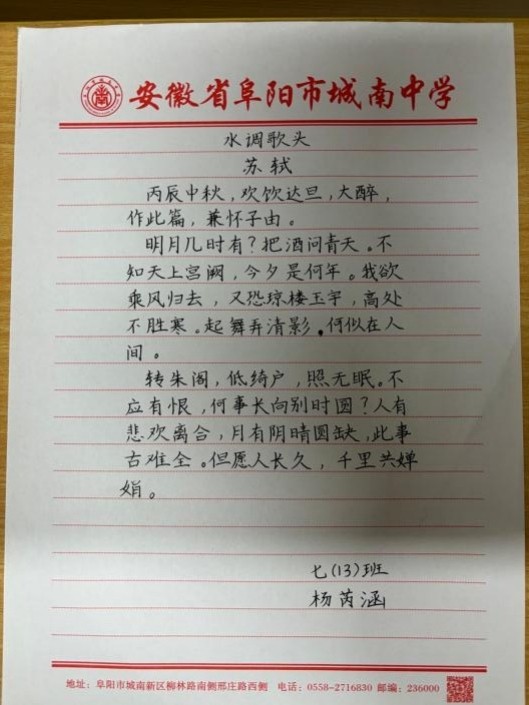 安徽省阜阳市城南中学
水调歌头
苏轼
丙辰中秋，欢饮达旦，大醉，
作此篇，兼怀子由。
明月几时有？把酒问青天。不
知天上宫阙，今夕是何年。我欲
乘风归去，又恐琼楼玉宇，高处
不胜寒。起舞弄清影。何似在人
间。
转朱阁，低绮户，照无眠。不
应有恨，何事长向别时圆？人有
悲欢离合，月有阴晴圆缺，此事
古难全。但愿人长久，千里共婵
娟。
七(13)班
杨芮涵
地址：阜阳市城南新区柳林路南侧邢庄路西侧 电话：0558-2716830 邮编：236000